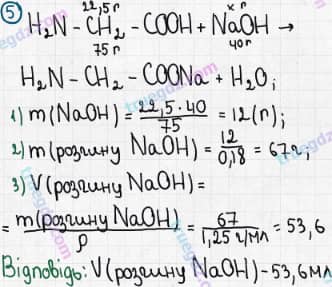 5
22,5г x г
H₂N - CH₂ - COOH + NaOH →
75г 40г
H₂N - CH₂ - COONa + H₂O;
1) m(NaOH) = 22,5·40/75 = 12(г);
2) m(розчину NaOH) = 12/0,18 = 67г;
3) V(розчину NaOH) =
= m(розчину NaOH)/ρ = 67/1,25 г/мл = 53,6
Відповідь: V(розчину NaOH) - 53,6 мл